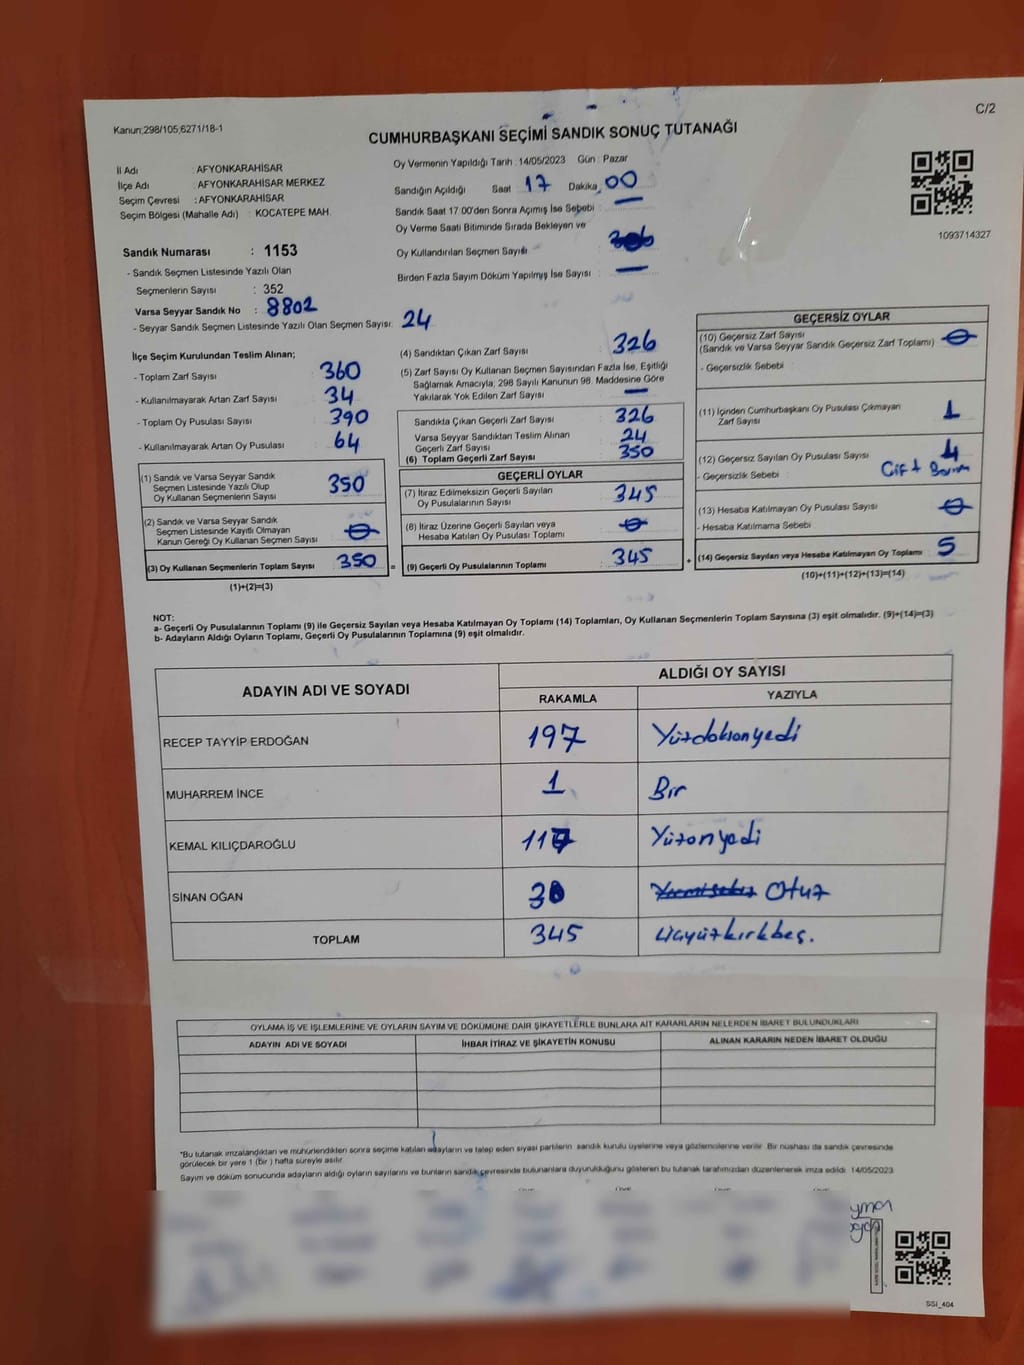 C/2
Kanun;298/105;6271/18-1
CUMHURBAŞKANI SEÇİMİ SANDIK SONUÇ TUTANAĞI
İl Adı : AFYONKARAHİSAR
İlçe Adı : AFYONKARAHİSAR MERKEZ
Seçim Çevresi : AFYONKARAHİSAR
Seçim Bölgesi (Mahalle Adı) : KOCATEPE MAH.
Oy Vermenin Yapıldığı Tarih : 14/05/2023 Gün : Pazar
Sandığın Açıldığı Saat 17 Dakika 00
Sandık Saat 17.00'den Sonra Açımış İse Sebebi : —
Oy Verme Saati Bitiminde Sırada Bekleyen ve
Oy Kullandırılan Seçmen Sayısı :
Birden Fazla Sayım Döküm Yapılmış İse Sayısı : —
1093714327
Sandık Numarası : 1153
- Sandık Seçmen Listesinde Yazılı Olan
Seçmenlerin Sayısı : 352
Varsa Seyyar Sandık No : 8802
- Seyyar Sandık Seçmen Listesinde Yazılı Olan Seçmen Sayısı: 24
İlçe Seçim Kurulundan Teslim Alınan;
- Toplam Zarf Sayısı 360
- Kullanılmayarak Artan Zarf Sayısı 34
- Toplam Oy Pusulası Sayısı 390
- Kullanılmayarak Artan Oy Pusulası 64
(1) Sandık ve Varsa Seyyar Sandık
Seçmen Listesinde Yazılı Olup
Oy Kullanan Seçmenlerin Sayısı 350
(2) Sandık ve Varsa Seyyar Sandık
Seçmen Listesinde Kayıtlı Olmayan
Kanun Gereği Oy Kullanan Seçmen Sayısı 0
(3) Oy Kullanan Seçmenlerin Toplam Sayısı 350 =
(1)+(2)=(3)
(4) Sandıktan Çıkan Zarf Sayısı 326
(5) Zarf Sayısı Oy Kullanan Seçmen Sayısından Fazla İse, Eşitliği
Sağlamak Amacıyla, 298 Sayılı Kanunun 98. Maddesine Göre
Yakılarak Yok Edilen Zarf Sayısı —
Sandıkta Çıkan Geçerli Zarf Sayısı 326
Varsa Seyyar Sandıktan Teslim Alınan
Geçerli Zarf Sayısı 24
(6) Toplam Geçerli Zarf Sayısı 350
GEÇERLİ OYLAR
(7) İtiraz Edilmeksizin Geçerli Sayılan
Oy Pusulalarının Sayısı 345
(8) İtiraz Üzerine Geçerli Sayılan veya
Hesaba Katılan Oy Pusulası Toplamı 0
(9) Geçerli Oy Pusulalarının Toplamı 345 +
GEÇERSİZ OYLAR
(10) Geçersiz Zarf Sayısı
(Sandık ve Varsa Seyyar Sandık Geçersiz Zarf Toplamı) 0
- Geçersizlik Sebebi :
(11) İçinden Cumhurbaşkanı Oy Pusulası Çıkmayan
Zarf Sayısı 1
(12) Geçersiz Sayılan Oy Pusulası Sayısı 4
- Geçersizlik Sebebi : Çift
(13) Hesaba Katılmayan Oy Pusulası Sayısı 0
- Hesaba Katılmama Sebebi :
(14) Geçersiz Sayılan veya Hesaba Katılmayan Oy Toplamı 5
(10)+(11)+(12)+(13)=(14)
NOT:
a- Geçerli Oy Pusulalarının Toplamı (9) ile Geçersiz Sayılan veya Hesaba Katılmayan Oy Toplamı (14) Toplamları, Oy Kullanan Seçmenlerin Toplam Sayısına (3) eşit olmalıdır. (9)+(14)=(3)
b- Adayların Aldığı Oyların Toplamı, Geçerli Oy Pusulalarının Toplamına (9) eşit olmalıdır.
ADAYIN ADI VE SOYADI ALDIĞI OY SAYISI
RAKAMLA YAZIYLA
RECEP TAYYİP ERDOĞAN 197 Yüzdoksanyedi
MUHARREM İNCE 1 Bir
KEMAL KILIÇDAROĞLU 117 Yüzonyedi
SİNAN OĞAN 30 Yirmisekiz Otuz
TOPLAM 345 Üçyüzkırkbeş.
OYLAMA İŞ VE İŞLEMLERİNE VE OYLARIN SAYIM VE DÖKÜMÜNE DAİR ŞİKAYETLERLE BUNLARA AİT KARARLARIN NELERDEN İBARET BULUNDUKLARI
ADAYIN ADI VE SOYADI İHBAR İTİRAZ VE ŞİKAYETİN KONUSU ALINAN KARARIN NEDEN İBARET OLDUĞU
*Bu tutanak imzalandıktan ve mühürlendikten sonra seçime katılan adayların ve talep eden siyasi partilerin sandık kurulu üyelerine veya gözlemcilerine verilir. Bir nüshası da sandık çevresinde
görülecek bir yere 1 (bir) hafta süreyle asılır.
Sayım ve döküm sonucunda adayların aldığı oyların sayılarını ve bunların sandık çevresinde bulunanlara duyurulduğunu gösteren bu tutanak tarafımızdan düzenlenerek imza edildi. 14/05/2023
SSI_404